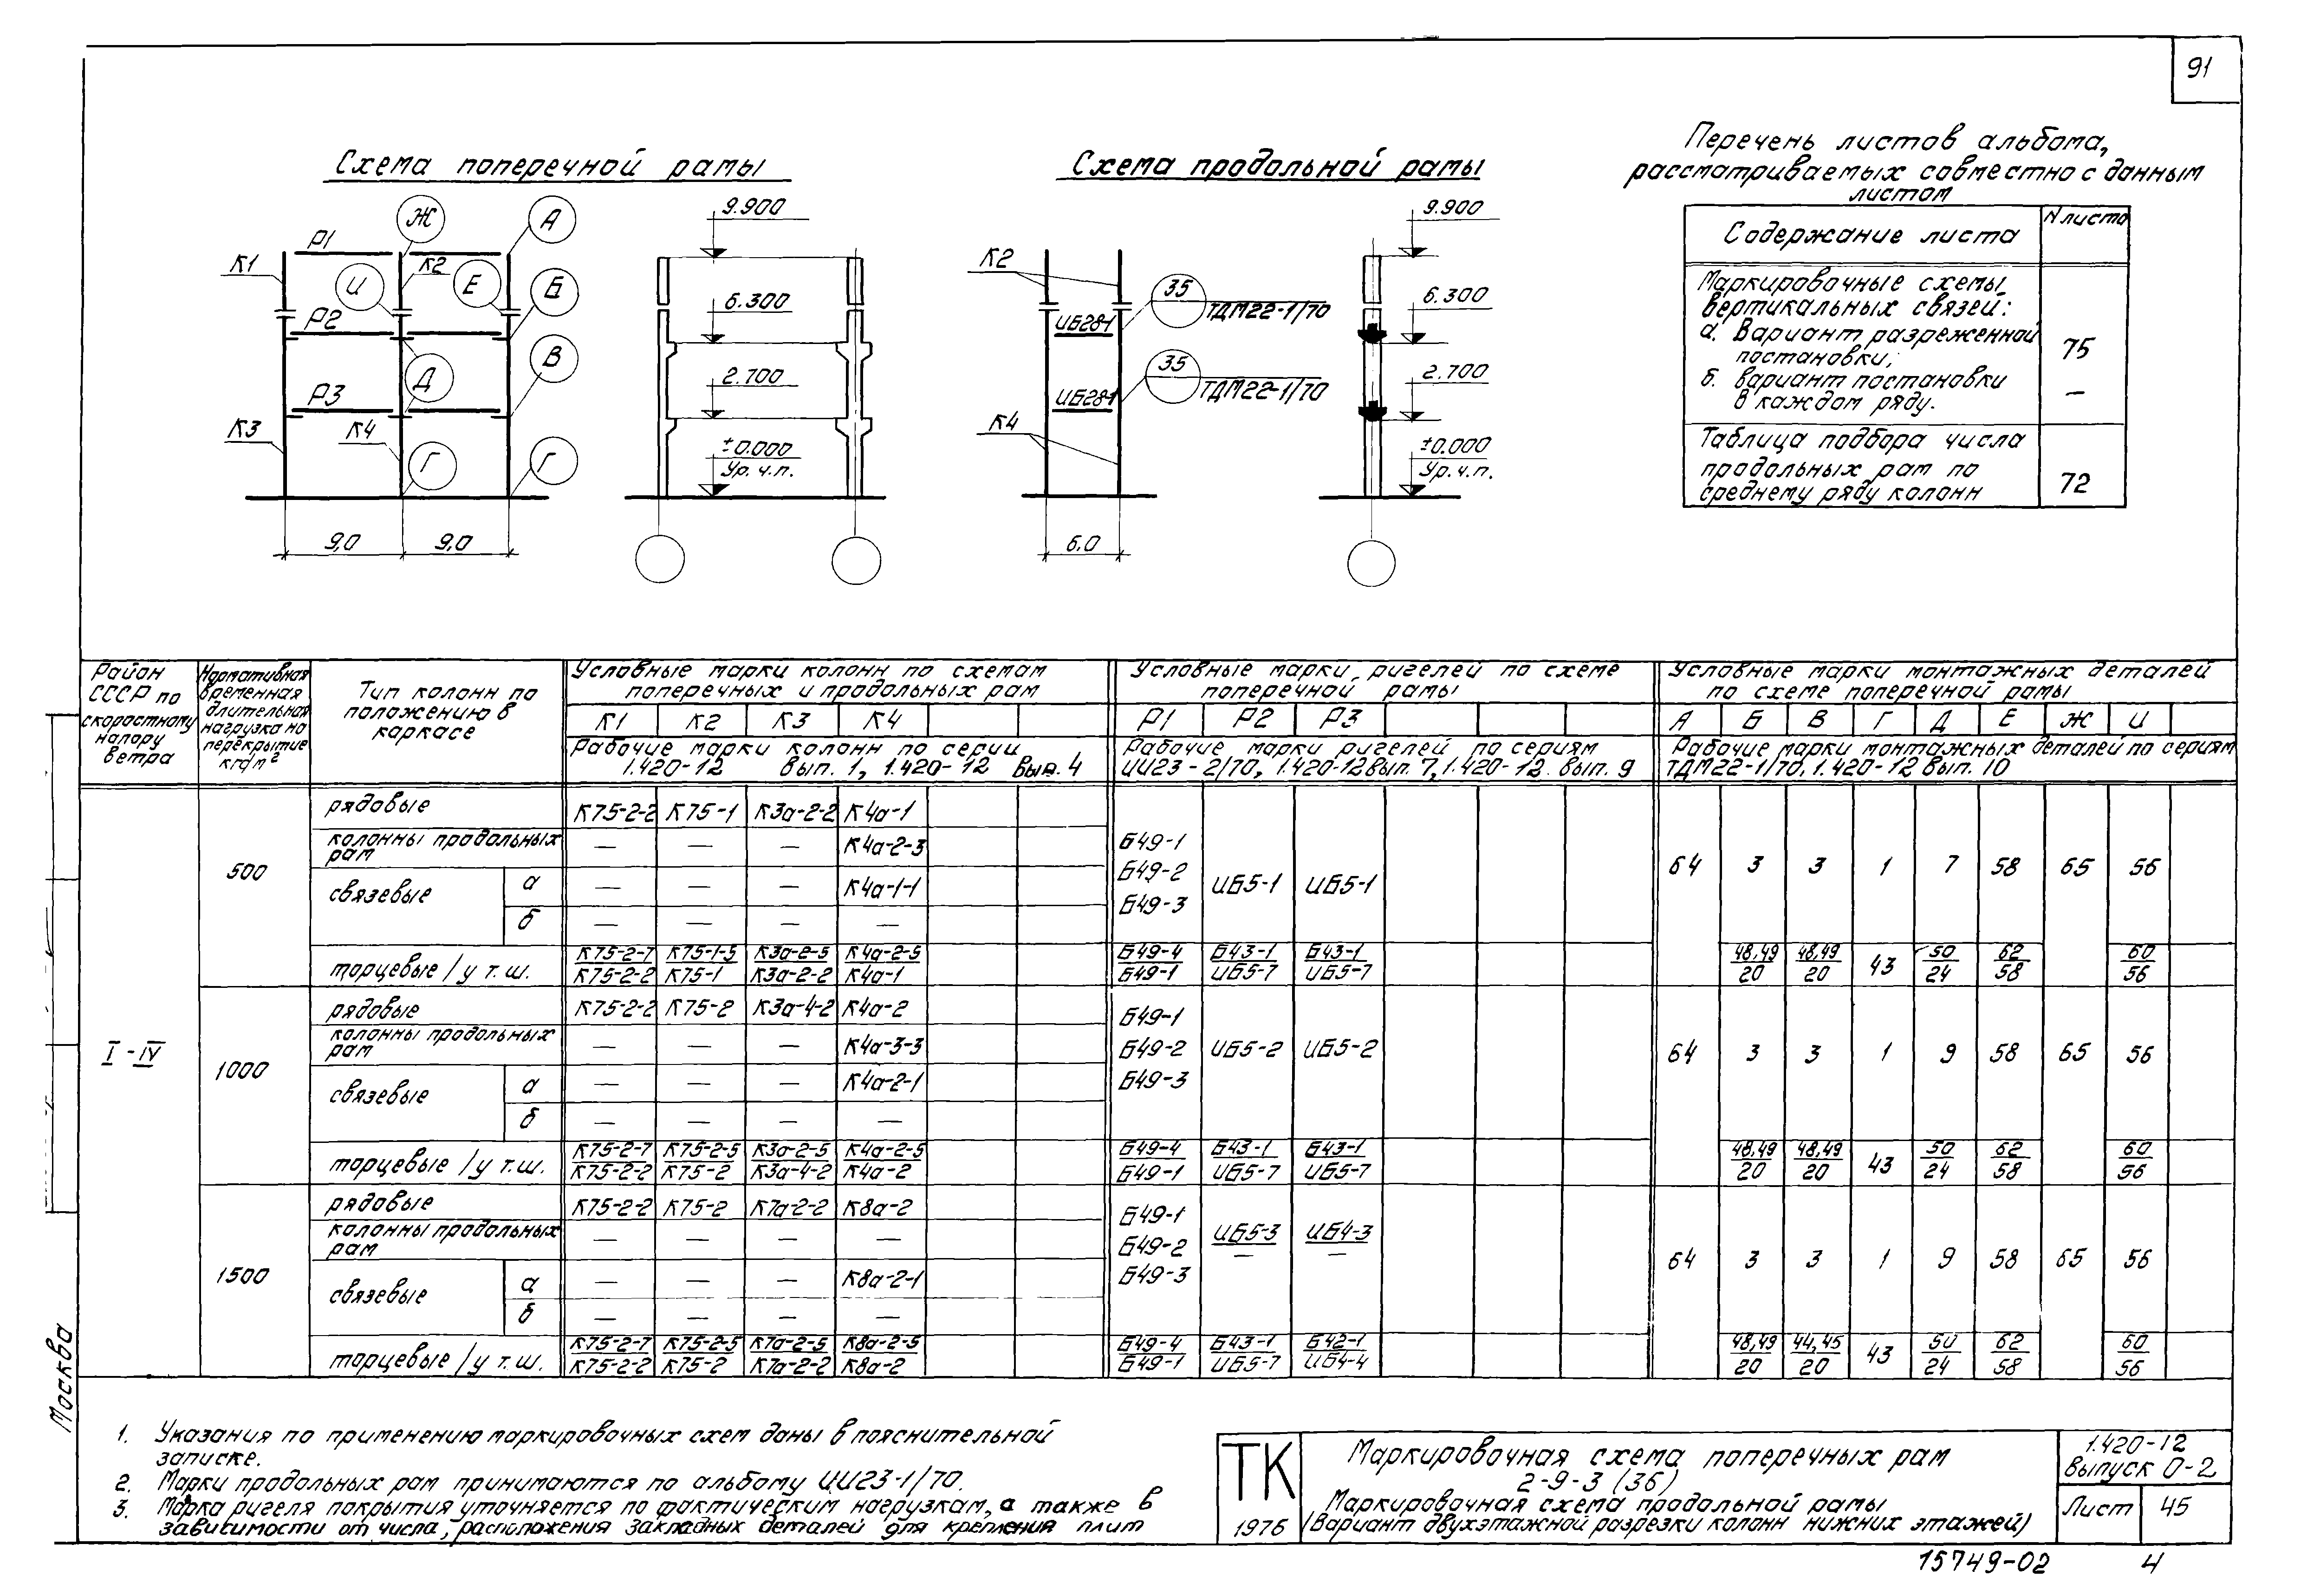 91
Схема поперечной рамы
Схема продольной рамы
Перечень листов альбома,
рассматриваемых совместно с данным
листом
Содержание листа
N листа
Маркировочные схемы
вертикальных связей:
а. Вариант разреженной
постановки;
75
б. вариант постановки
в каждом ряду.
—
Таблица подбора числа
продольных рам по
среднему ряду колонн
72
Ж А
Р1
К1 К2
И Е Б
Р2
Д В
Р3
К3 К4
Г Г
9,0 9,0
9.900
6.300
2.700
±0.000
Ур. ч.п.
К2
35
ТДМ22-1/70
ИБ28-1
35
ТДМ22-1/70
ИБ28-1
К4
6.0
9.900
6.300
2.700
±0.000
Ур. ч.п.
Район СССР по скоростному напору ветра
Нормативная временная длительная нагрузка на перекрытие кгс/м²
Тип колонн по положению в каркасе
Условные марки колонн по схемам поперечных и продольных рам
К1 К2 К3 К4
Рабочие марки колонн по серии 1.420-12 вып. 1, 1.420-12 вып. 4
Условные марки ригелей по схеме поперечной рамы
Р1 Р2 Р3
Рабочие марки ригелей по сериям ИИ23-2/70, 1.420-12 вып. 7, 1.420-12 вып. 9
Условные марки монтажных деталей по схеме поперечной рамы
А Б В Г Д Е Ж И
Рабочие марки монтажных деталей по сериям ТДМ22-1/70, 1.420-12 вып. 10
I - IV
500
рядовые К75-2-2 К75-1 К3а-2-2 К4а-1
колонны продольных рам — — — К4а-2-3
связевые а — — — К4а-1-1
б — — — —
Б49-1
Б49-2
Б49-3
ИБ5-1 ИБ5-1
64 3 3 1 7 58 65 56
торцевые / у т.ш.
К75-2-7 К75-1-5 К3а-2-5 К4а-2-5 Б49-4 Б43-1 Б43-1 48,49 48,49 43 50 62 60
К75-2-2 К75-1 К3а-2-2 К4а-1 Б49-1 ИБ5-7 ИБ5-7 20 20 24 58 56
1000
рядовые К75-2-2 К75-2 К3а-4-2 К4а-2
колонны продольных рам — — — К4а-3-3
связевые а — — — К4а-2-1
б — — — —
Б49-1
Б49-2
Б49-3
ИБ5-2 ИБ5-2
64 3 3 1 9 58 65 56
торцевые / у т.ш.
К75-2-7 К75-2-5 К3а-2-5 К4а-2-5 Б49-4 Б43-1 Б43-1 48,49 48,49 43 50 62 60
К75-2-2 К75-2 К3а-4-2 К4а-2 Б49-1 ИБ5-7 ИБ5-7 20 20 24 58 56
1500
рядовые К75-2-2 К75-2 К7а-2-2 К8а-2
колонны продольных рам — — — —
связевые а — — — К8а-2-1
б — — — —
Б49-1
Б49-2
Б49-3
ИБ5-3 ИБ4-3
— —
64 3 3 1 9 58 65 56
торцевые / у т.ш.
К75-2-7 К75-2-5 К7а-2-5 К8а-2-5 Б49-4 Б43-1 Б42-1 48,49 44,45 43 50 62 60
К75-2-2 К75-2 К7а-2-2 К8а-2 Б49-1 ИБ5-7 ИБ4-4 20 20 24 58 56
Москва
1. Указания по применению маркировочных схем даны в пояснительной
записке.
2. Марки продольных рам принимаются по альбому ИИ23-1/70.
3. Марка ригеля покрытия уточняется по фактическим нагрузкам, а также в
зависимости от числа, расположения закладных деталей для крепления плит
ТК
1976
Маркировочная схема поперечных рам
2-9-3 (36)
Маркировочная схема продольной рамы
(Вариант двухэтажной разрезки колонн нижних этажей)
1.420-12
выпуск 0-2
Лист 45
15749-02 4